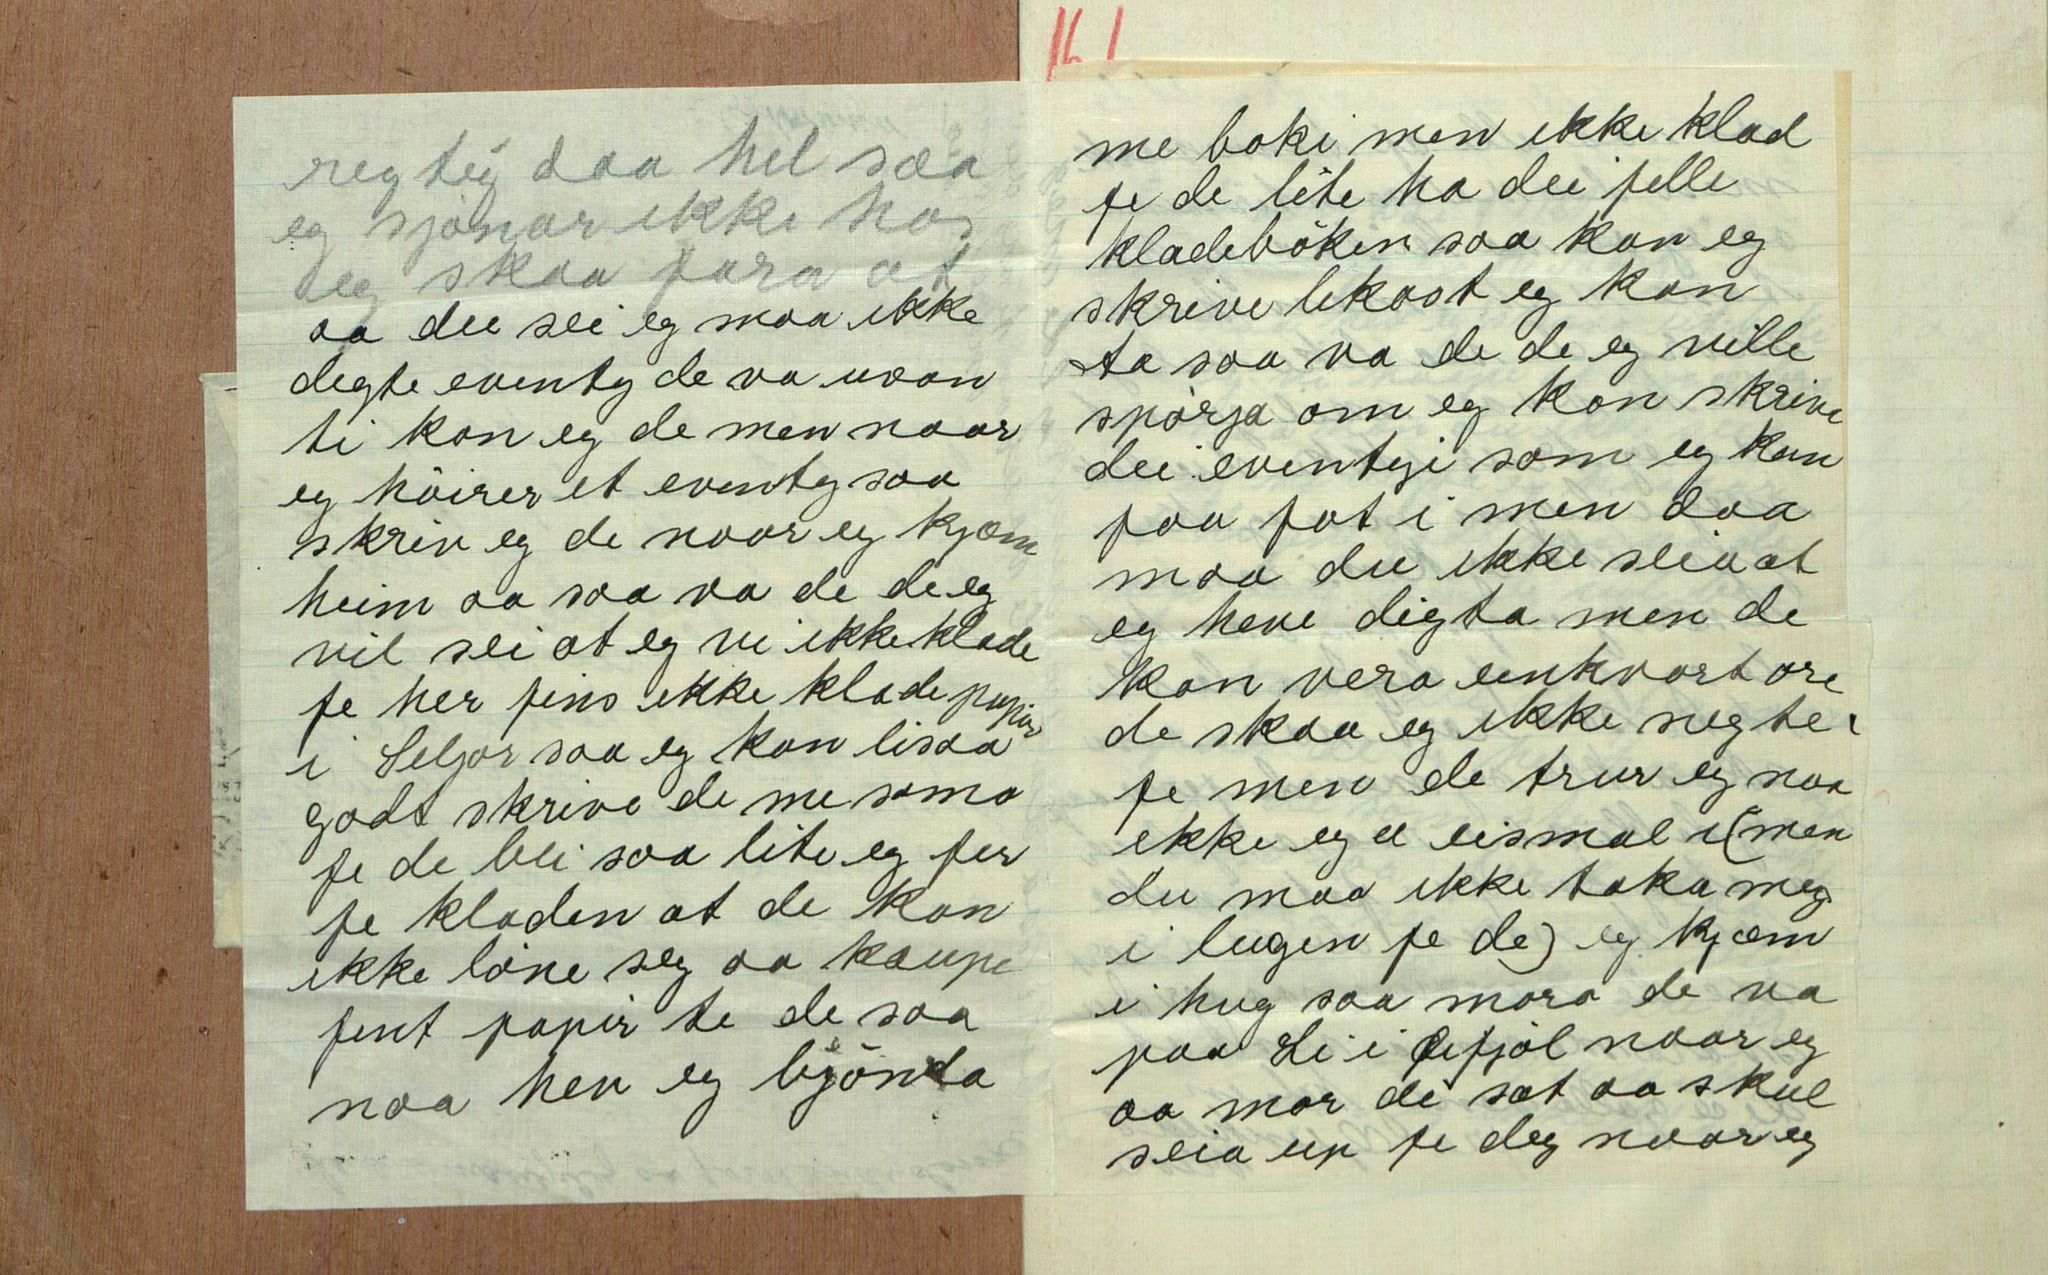 161
regtig daa hel saa
eg sjönar ikke hos
eg skaa fara at
aa du sei eg maa ikke
degte eventy de va uvan
ti kan eg de men naar
eg höirer et eventy saa
skriv eg de naar eg kjæm
heim aa saa va de de eg
vil sei at eg vi ikke klade
fe her fins ikke klade papir
i Seljor saa eg kan lisaa
godt skrive de me sama
fe de bli saa lite eg fer
fe kladen at de kan
ikke löne seg aa kaupe
fint papir te de saa
naa hev eg byönda
me boki men ikke klad
fe de lite ha dei felle
kladeböken saa kan eg
skrive lekaot eg kan
ta saa va de de eg ville
spörja om eg kan skrive
dei eventyi som eg kan
faa fat i men daa
maa du ikke seia at
eg heve digta men de
kan vera einkvart ore
de skaa eg ikke negte
fe men de trur eg naa
ikke eg e eismal i (men
du maa ikke taka meg
i lugen fe de) eg kjæm
i hug saa mara de va
paa Li i Efjöl naar eg
aa mor di sat aa skul
seia up fe deg naar eg